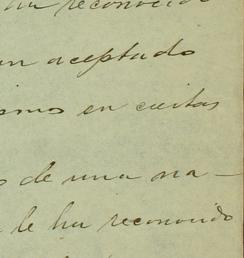 ha reconocido
an aceptado
smo en ciertas
s de una na-
le ha reconocido